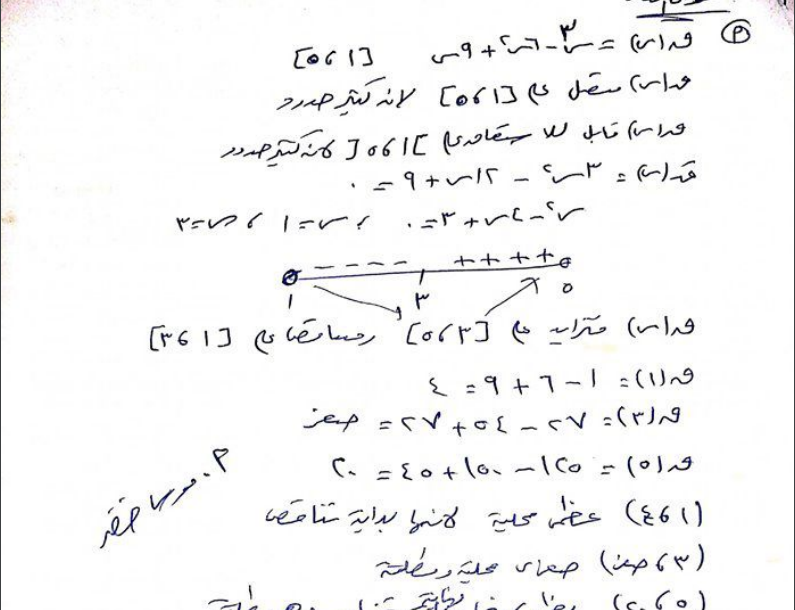 P
ق(س) = س٣ - ٦س٢ + ٩س [٥،١]
ق(س) متصل على [٥،١] لانه كثير حدود
ق(س) قابل للاشتقاق على ]٥،١[ لانه كثير حدود
قَ(س) = ٣س٢ - ١٢س + ٩ = ٠
س٢ - ٤س + ٣ = ٠ ، س = ١ ، س = ٣
- - - - + + + +
١ ٣ ٥
ق(س) متزايد على [٥،٣] ومتناقص على [٣،١]
ق(١) = ١ - ٦ + ٩ = ٤
ق(٣) = ٢٧ - ٥٤ + ٢٧ = صفر
ق(٥) = ١٢٥ - ١٥٠ + ٤٥ = ٢٠
(٤،١) عظمى محلية لانها بداية تناقص
(٣،صفر) صغرى محلية ومطلقة
(٢٠،٥)